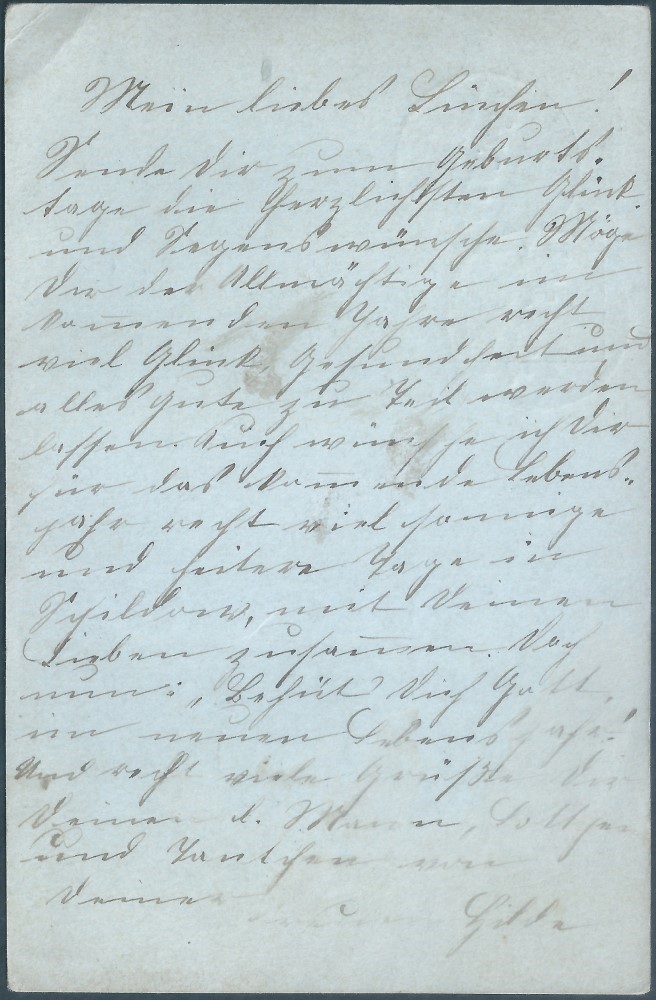 Mein liebes Linchen!
Sende Dir zum Geburts-
tage die herzlichsten Glück
und Segenswünsche. Möge
Dir der Allmächtige im
kom̄enden Jahre recht
viel Glück, Gesundheit und
alles Gute zu Teil werden
lassen. Auch wünsche ich Dir
für das kom̄ende Lebens-
jahr recht viel sonnige
und heitere Tage in
Schildow, mit Deinen
Lieben zusam̄en. Doch
nun: „Behüt Dich Gott,
im neuen Lebensjahr!
Und recht viele Grüße Dir
Deinen l. Mann, Lottchen
und Tantchen von
Deiner
Hilde